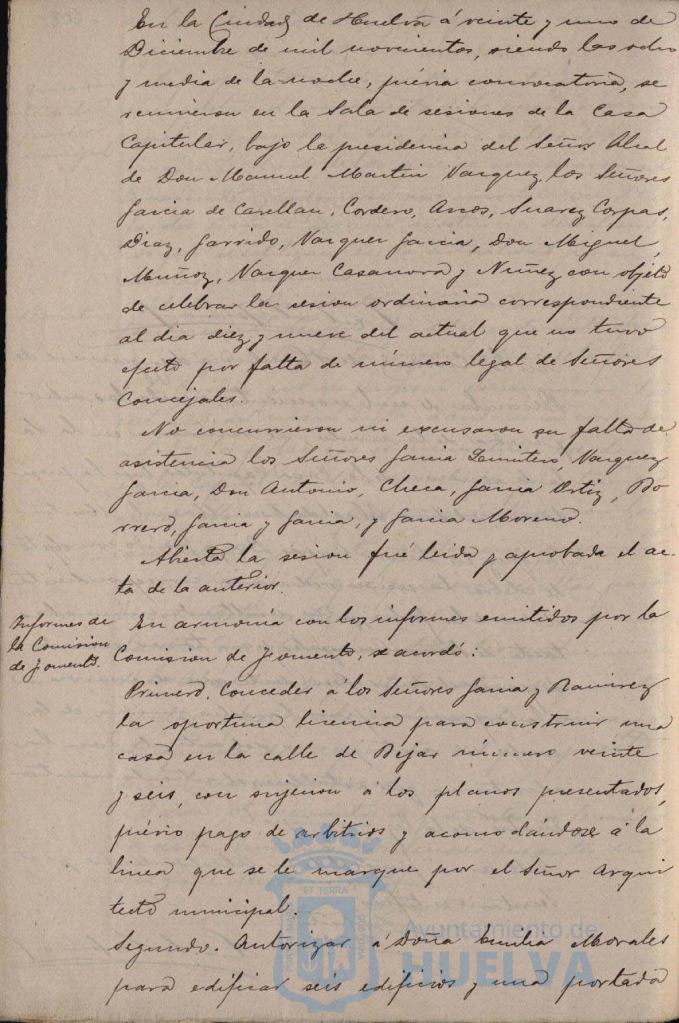 En la Ciudad de Huelva á veinte y uno de
Diciembre de mil novecientos, siendo las ocho
y media de la noche, prévia convocatoria, se
reunieron en la Sala de sesiones de la Casa
Capitular, bajo la presidencia del Señor Alcal
de Don Manuel Martin Vazquez, los Señores
Garcia de Casellau, Cordero, Arcos, Suarez Corpas,
Diaz, Garrido, Vazquez Garcia, Don Miguel,
Muñoz, Vazquez Casanova y Nuñez con objeto
de celebrar la sesion ordinaria correspondiente
al dia diez y nueve del actual que no tuvo
efecto por falta de número legal de Señores
Concejales.
No concurrieron ni excusaron su falta de
asistencia los Señores Garcia Vazquez
Garcia, Don Antonio, Checa, Garcia Ortiz, Bo-
rrero, Garcia y Garcia, y Garcia Moreno.
Abierta la sesion fué leida y aprobada el ac-
ta de la anterior.
Informes de
la Comision
de Fomento.
En armonía con los informes emitidos por la
Comision de Fomento, se acordó:
Primero. Conceder á los Señores Garcia y Ramirez
la oportuna licencia para construir una
casa en la calle de Bejar número veinte
y seis, con sujecion á los planos presentados,
prévio pago de arbitrios y acomodándose á la
linea que se le marque por el Señor Arqui
tecto municipal.
Segundo. Autorizar á Doña Emilia Morales
para edificar seis edificios y una portada
Ayuntamiento de
HUELVA